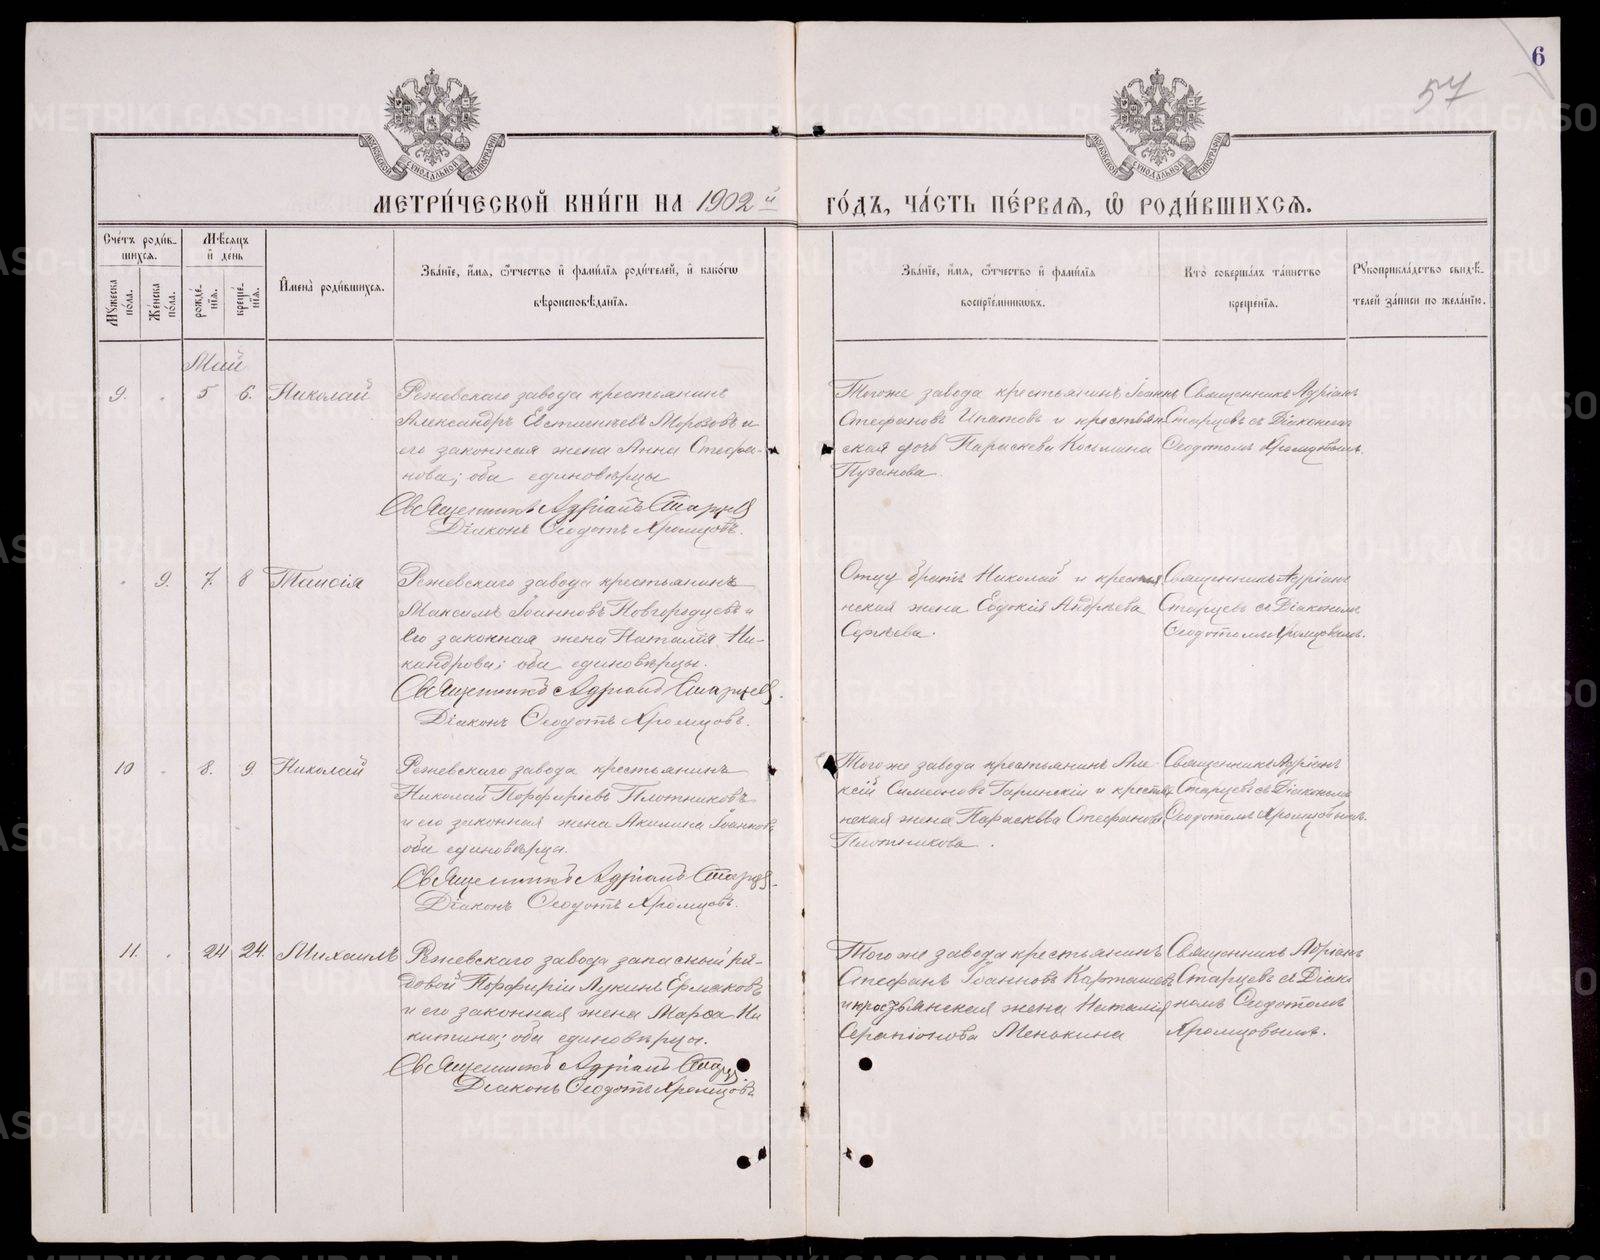 6
57
МОСКОВСКОЙ СѴНОДАЛЬНОЙ ТИПОГРАФІИ
МОСКОВСКОЙ СѴНОДАЛЬНОЙ ТИПОГРАФІИ
МЕТРИ́ЧЕСКОЙ КНИ́ГИ НА 1902й ГО́ДЪ, ЧА́СТЬ ПЕ́РВАѦ, Ѡ РОДИ́ВШИХСѦ.
Счетъ роди́в-
шихсѧ.
Мѣсѧцъ
и де́нь
Мꙋ́жеска
по́ла.
Же́нска
по́ла.
рожде́-
нїѧ.
креще́-
нїѧ.
Имена̀ роди́вшихсѧ.
Зва́нїе, и́мѧ, ѻ́тчество и фами́лїѧ роди́телей, и како́гѡ
вѣроисповѣ́данїѧ.
Зва́нїе, и́мѧ, ѻ́тчество и фами́лїѧ
воспрїе́мникѡвъ.
Кто̀ соверша́лъ та́инство
креще́нїѧ.
Рꙋкоприкла́дство свидѣ́-
телей за́писи по жела́нїю.
Май
9. . 5 6. Николай
Режевскаго завода крестьянинъ
Александръ Евстигнѣевъ Морозовъ и
его законная жена Анна Стефа-
нова; оба единовѣрцы
Священникъ Адріанъ Старцев
Діаконъ Ѳеодотъ Хромцовъ.
Тогоже завода крестьянинъ Іоаннъ
Стефановъ Ипатовъ и крестьян
ская дочь Параскева Косьмина
Пузанова.
Священникъ Адріанъ
Старцевъ съ Діакономъ
Ѳеодотомъ Хромцовымъ.
. 9. 7. 8 Таисія
Режевскаго завода крестьянинъ
Максимъ Іоанновъ Новгородцевъ и
его законная жена Наталія Ни-
кандрова; оба единовѣрцы.
Священникъ Адріанъ Старцев.
Діаконъ Ѳеодотъ Хромцовъ.
Отцу братъ Николай и крестья
нская жена Евдокія Андреева
Сергѣева.
Священникъ Адріанъ
Старцевъ съ Діакономъ
Ѳеодотомъ Хромцовымъ.
10 . 8. 9. Николай
Режевскаго завода крестьянинъ
Николай Порфирьевъ Плотниковъ
и его законная жена Акилина Іоаннов
оба единовѣрцы.
Священникъ Адріанъ Старцев.
Діаконъ Ѳеодотъ Хромцовъ.
Тогоже завода крестьянинъ Але
ксій Симеоновъ Гаринскій и крестья
нская жена Параскева Стефанова
Плотникова.
Священникъ Адріанъ
Старцевъ съ Діакономъ
Ѳеодотомъ Хромцовымъ.
11. . 24 24. Михаилъ
Режевскаго завода запасный ря-
довой Порфирій Лукинъ Ермаковъ
и его законная жена Марѳа Ни
китина; оба единовѣрцы.
Священникъ Адріанъ Старц
Діаконъ Ѳеодотъ Хромцовъ
Тогоже завода крестьянинъ
Стефанъ Іоанновъ Карташевъ
и крестьянская жена Наталія
Серапіонова Менькина
Священникъ Адріанъ
Старцевъ съ Діако
номъ Ѳеодотомъ
Хромцовымъ.
METRIKI.GASO-URAL.RU